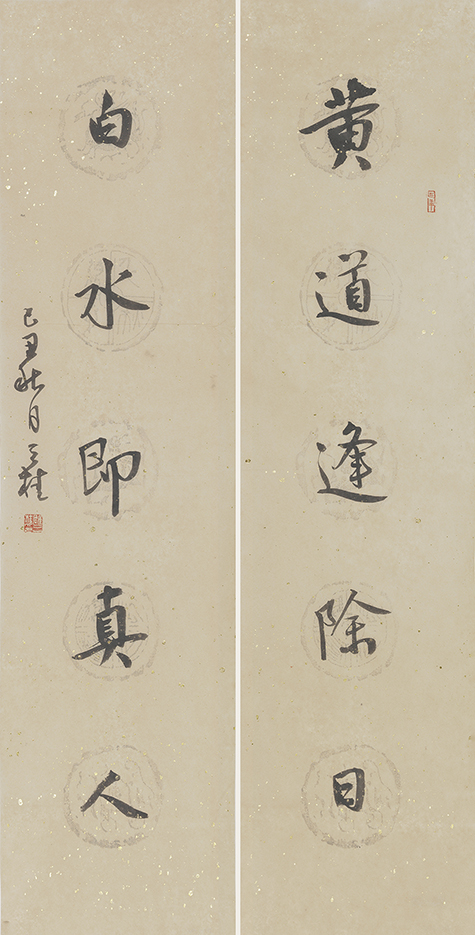 黄道逢除日
白水即真人
己丑秋月